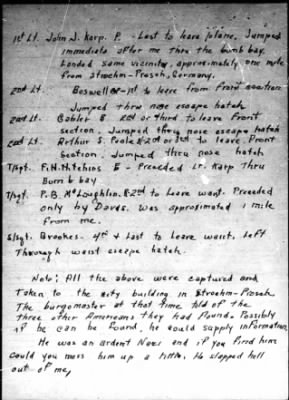 1st Lt. John J. Karp. P. - Last to leave plane. Jumped
immediate after me thru the bomb bay.
Landed same vicinity, approximately one mile
from Stroehm-Prosch, Germany.
2nd Lt. Boswell - 1st to leave from front section
Jumped thru nose escape hatch
2nd Lt. Gobler B. 2nd or third to leave front
section. Jumped thru nose escape hatch
2nd Lt. Arthur S. Poole 2nd or 3rd to leave Front
Section. Jumped thru nose hatch
T/sgt. F.N. Hitchins E - Preceded Lt. Karp Thru
Bomb bay
T/sgt. P.B. McLoughlin. 2nd to Leave waist. Preceded
only by Davis. Was approximated 1 mile
from me.
S/sgt. Brookes. 4th & Last to Leave waist. Left
Through waist escape hatch.
Note: All the above were captured and
Taken to the city building in Stroehm-Prosch.
The burgomaster at that time told of the
three other Americans they had found. Possibly
if he can be found, he could supply information.
He was an ardent Nazi and if you find him
could you mess him up a little. He slapped hell
out of me,